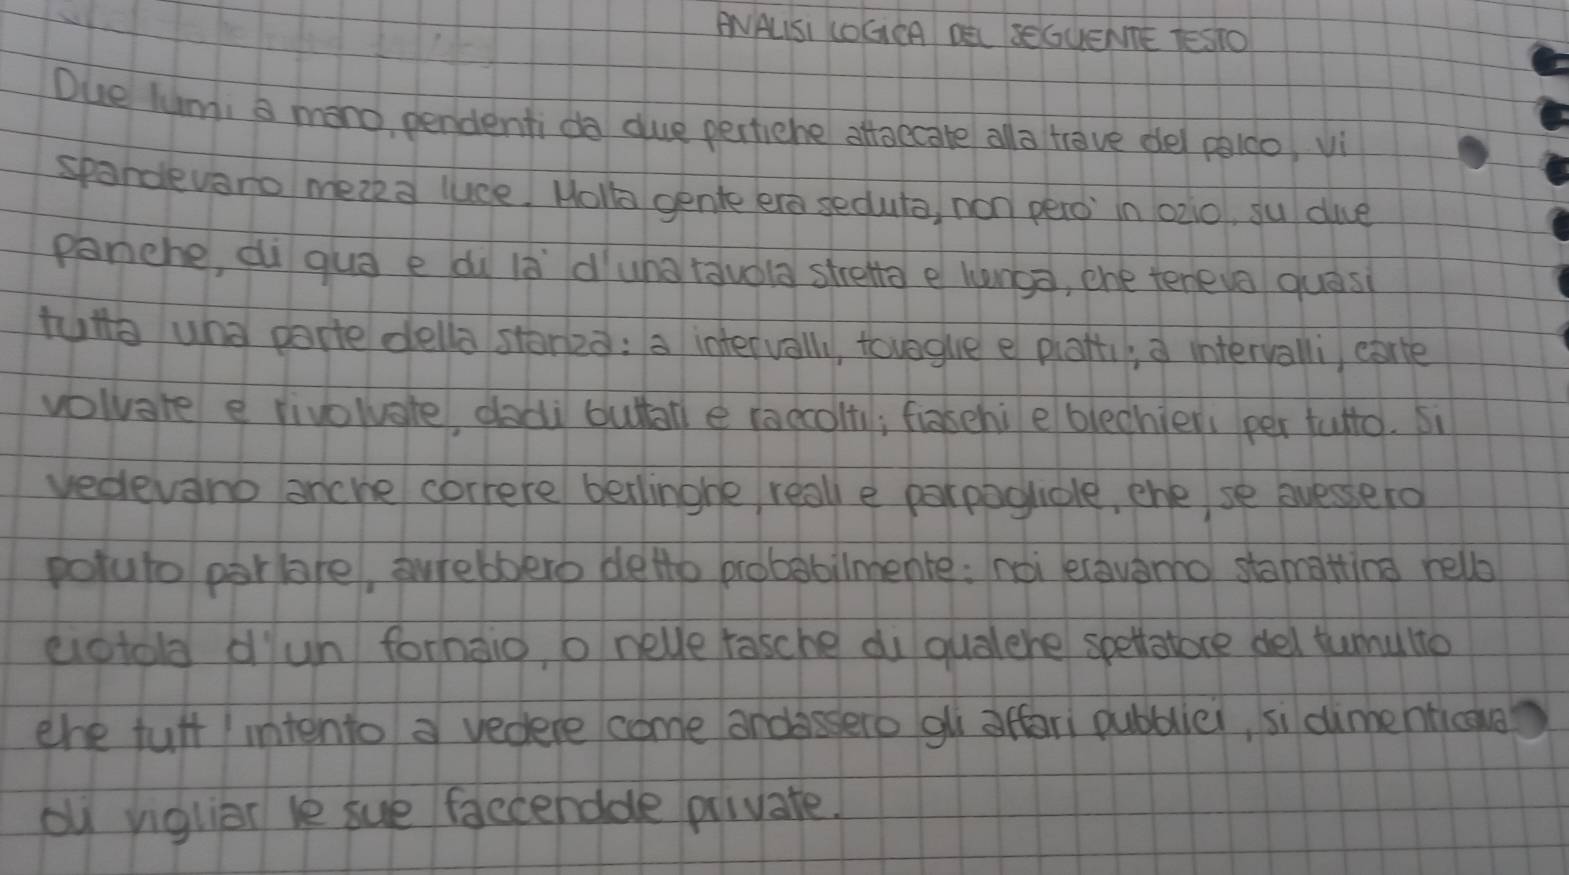 ANALISI LOGICA DEL SEGUENTE TESTO
Due lumi a mano, pendenti da due pertiche attaccate alla trave del palco, vi
spandevano mezza luce. Molta gente era seduta, non però in ozio, su due
panche, di qua e di là d'una tavola stretta e lunga, che teneva quasi
tutta una parte della stanza: a intervalli, tovaglie e piatti; a intervalli, carte
voltate e rivoltate, dadi buttati e raccolti; fiaschi e bicchieri per tutto. Si
vedevano anche correre berlinghe, reali e parpagliole, che, se avessero
potuto parlare, avrebbero detto probabilmente: noi eravamo stamattina nella
ciotola d'un fornaio, o nelle tasche di qualche spettatore del tumulto
che tutt'intento a vedere come andassero gli affari pubblici, si dimenticava
di vigliar le sue faccendde private.